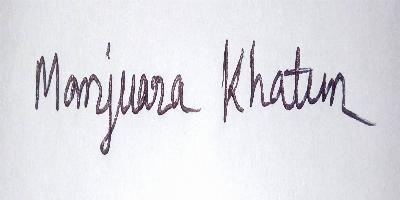 Monjuara Khatun